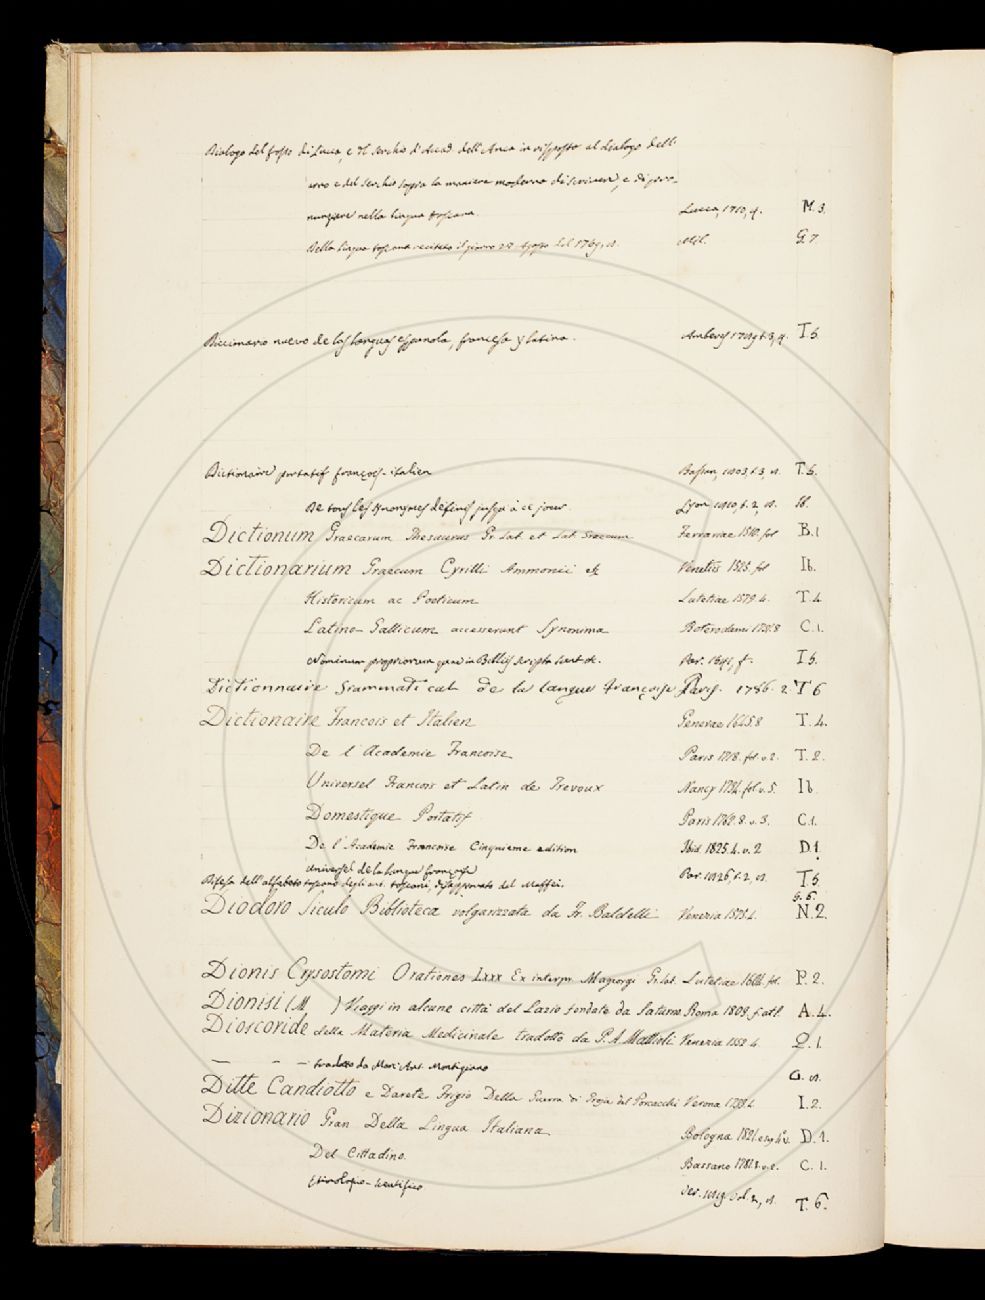 Dialogo del fosso di Lucca, e il Serchio d'Accad. dell'Anca in risposta al dialogo dell'
arno e del Serchio sopra la maniera moderna di scrivere, e di pro-
nunziare nella lingua toscana. Lucca, 1710, 4. M. 3.
Della lingua toscana recitato il giorno 27 Agosto del 1769, 8. Mil. G. 7.
nuevo de las lenguas española, francesa y latina. T. 5.
Dictionaire portatif françois-italien Bassan, 1803, t. 3, 8. T. 5.
De tous les synonymes définis jusqu'à ce jour Lyon 1810, t. 2, 8. Ib.
Dictionum Graecarum Thesaurus Gr. Lat. et Lat. Graecum Ferrariae 1510. fol B. 1
Dictionarium Graecum Cyrilli Ammonii Venetiis 1525. fol Ib.
Historicum ac Poeticum Lutetiae 1579 4. T. 4
Latino-Gallicum accesserunt Synonima 8 C. 1.
Nominum propriorum quae in Bibliis scripta sunt Par. 1541, f. T 5.
Dictionnaire Grammatical de la langue françoise Paris. 1786. 2 T 6
Dictionaire Francois et Italien Genevae 1645. 8 T. 4.
De l'Academie Francoise Paris 1718. fol. v. 2. T. 2.
Universel Francois et Latin de Trevoux Nancy fol. v. 5. Ib
Domestique Portatif Paris 1762. 8. v. 3. C. 1.
De l'Academie Francoise Cinquieme edition Ibid 1825. 4. v. 2 D. 1.
universel de la langue françoise Par. 1826, t. 2, 8. T. 5
Difesa dell'alfabeto toscano degli toscani, disapprovato del Maffei. G. 6.
Diodoro Siculo Biblioteca volgarizzata da Fr. Baldelli Venezia 1575. 4. N. 2.
Dionis Crysostomi Orationes Lxxx Ex interpr. Gr. Lat. Lutetiae 1604. fol. P. 2.
Dionisi (M ) Viaggi in alcune città del Lazio fondate da Saturno Roma 1809. f. atl. A. 4.
Dioscoride della Materia Medicinale tradotto da P. A. Mattioli Venezia 1552. 4. Q. 1.
— " — tradotto da Marc'Ant. Montigiano G. 8.
Ditte Candiotto e Darete Frigio Della Guerra di Troja del Porcacchi Verona I. 2.
Dizionario Gran Della Lingua Italiana Bologna D. 1.
Del Cittadino. Bassano C. 1.
etimologico-scientifico Ver. 1819. vol. 2, 8. T. 6.